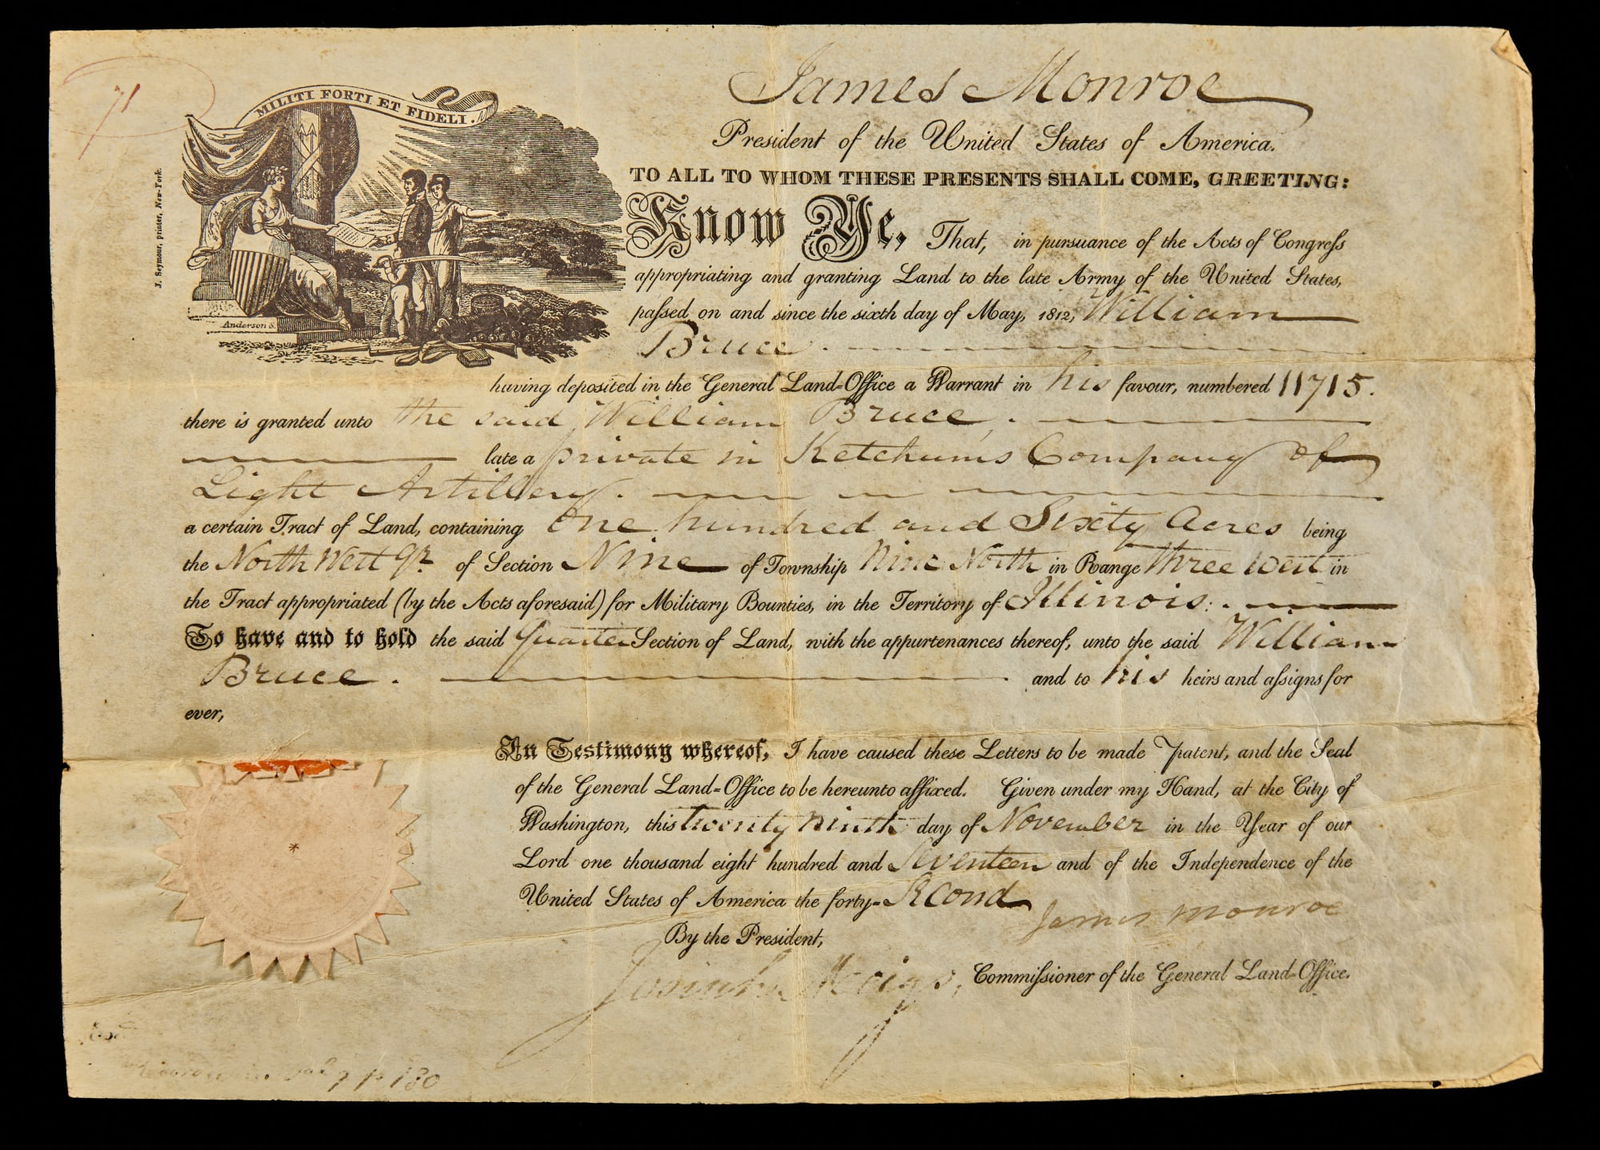 71
MILITI FORTI ET FIDELI.
J. Seymour, printer, New-York.
Anderson S.
James Monroe
President of the United States of America.
TO ALL TO WHOM THESE PRESENTS SHALL COME, GREETING:
Know Ye, That, in pursuance of the Acts of Congreſs
appropriating and granting Land to the late Army of the United States,
paſsed on and since the sixth day of May, 1812, William
Bruce
having deposited in the General Land-Office a Warrant in his favour, numbered 11715.
there is granted unto the said William Bruce,
late a private in Ketchums Company of
Light Artillery.
a certain Tract of Land, containing One hundred and Sixty Acres being
the North West qr. of Section Nine of Township Nine North in Range three west in
the Tract appropriated (by the Acts aforesaid) for Military Bounties, in the Territory of Illinois.
To have and to hold the said quarter Section of Land, with the appurtenances thereof, unto the said William
Bruce. and to his heirs and aſsigns for
ever,
In Testimony whereof, I have caused these Letters to be made Patent, and the Seal
of the General Land-Office to be hereunto affixed. Given under my Hand, at the City of
Washington, this twenty ninth day of November in the Year of our
Lord one thousand eight hundred and Seventeen and of the Independence of the
United States of America the forty-Second
James Monroe
By the President,
Josiah Meigs, Commiſsioner of the General Land-Office.
7 p 130